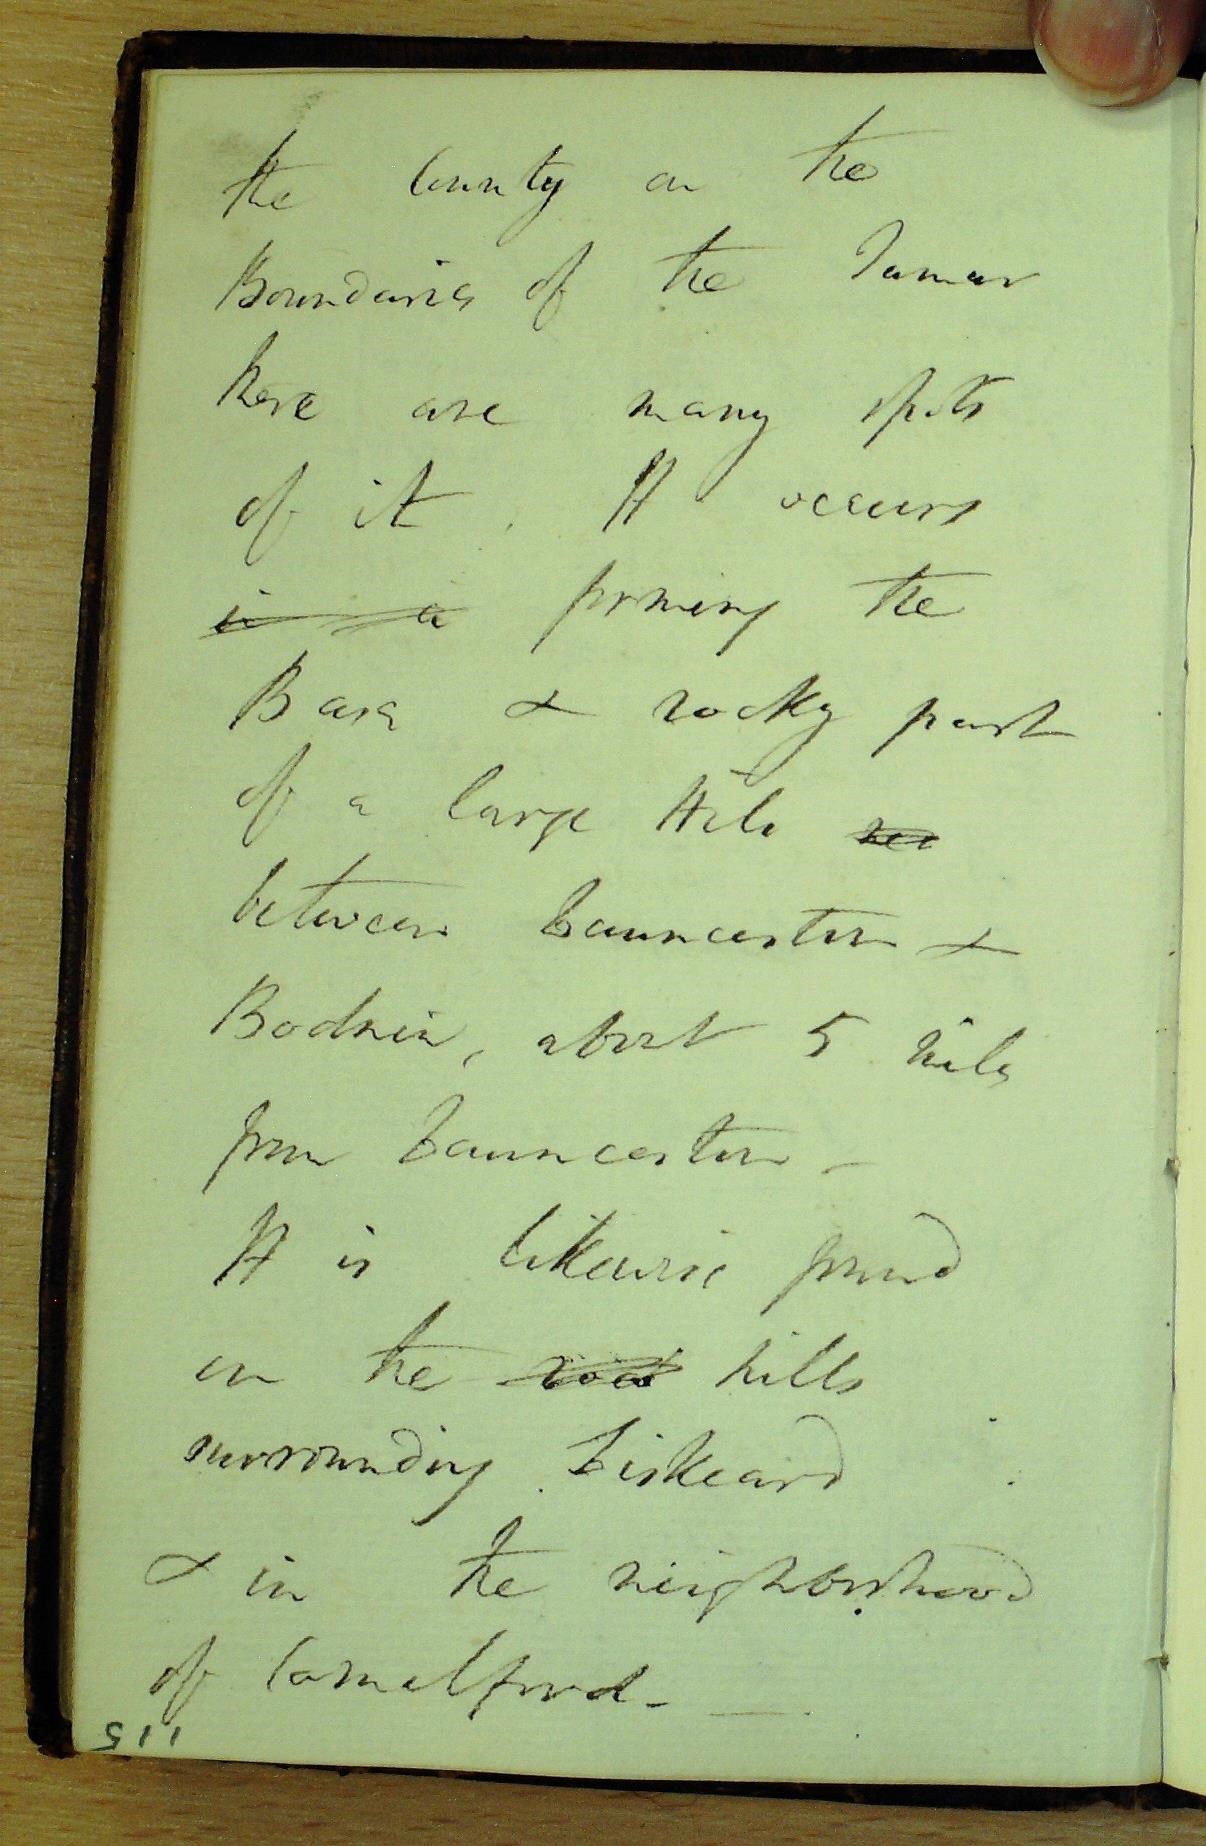 the County on the
Boundaries of the Tamar
here are many spots
of it. It occurs
in a forming the
Base & rocky part
of a large Hill
between Launceston &
Bodmin, about 5 miles
from Launceston -
It is likewise found
on the road hills
surrounding Liskeard
& in the neighborhood
of Camelford -
115